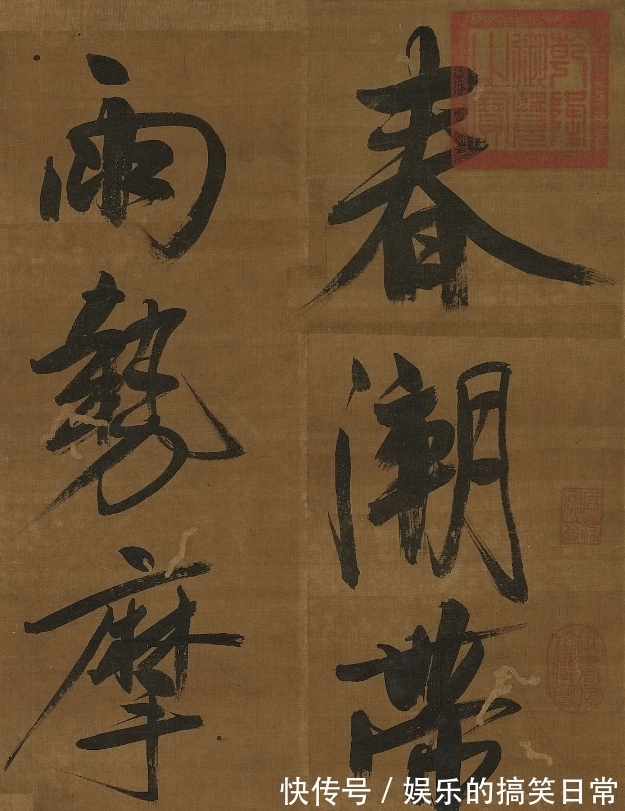 春潮帶
雨勢摩
快传号 / 娱乐的搞笑日常